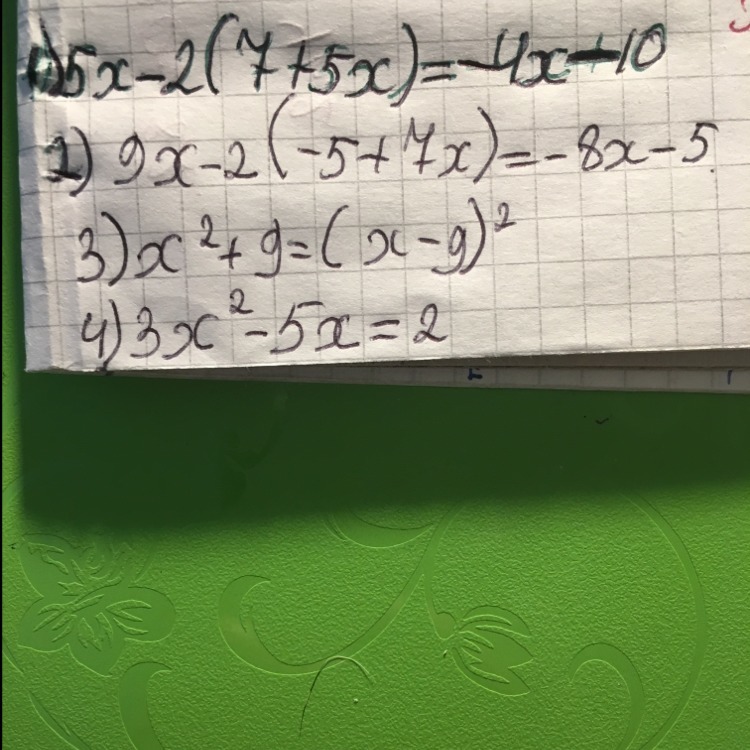 1) 5x-2(7+5x)=-4x-10
2) 9x-2(-5+7x)=-8x-5
3) x²+9=(x-9)²
4) 3x²-5x=2